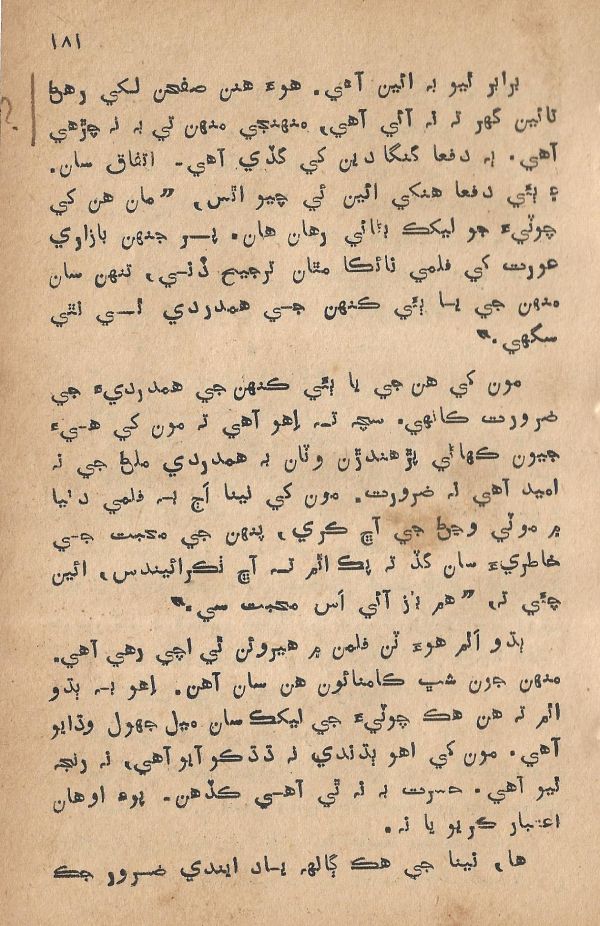 ١٨١
برابر ٿيو به ائين آهي. هوءَ هنن صفحن لکي رهڻ
تائين گهر ته نه آئي آهي، منهنجي منهن تي به نه چڙهي
آهي. ٻه دفعا گنگا دين کي گڏي آهي۔ اتفاق سان.
۽ ٻئي دفعا هنکي ائين ئي چيو اٿس، ”مان هن کي
چوٽيءَ جو ليکڪ بڻائي رهان هان. پر جنهن بازاري
عورت کي فلمي نائڪا مٿان ترجيح ڏئي، تنهن سان
منهن جي يا ٻئي ڪنهن جي همدردي ٿي نٿي
سگهي.“
مون کي هن جي يا ٻئي ڪنهن جي همدرديءَ جي
ضرورت ڪانهي. سچ ته اهو آهي ته مون کي هيءَ
جيون ڪهاڻي پڙهندڙن وٽان به همدردي ملڻ جي نه
اميد آهي نه ضرورت. مون کي نينا اڄ به فلمي دنيا
۾ موٽي وڃڻ جي آڇ ڪري، پنهن جي محبت جي
خاطريءَ سان گڏ ته پڪ اٿم ته آڇ ٺڪرائيندس، ائين
چئي ته، ”هم باز آئي اَس محبت سي.“
ٻڌو اَٿم هوءَ ٽن فلمن ۾ هيروئن ٿي اچي رهي آهي.
منهن جون شڀ ڪامنائون هن سان آهن. اهو به ٻڌو
اٿم ته هن هڪ چوٽيءَ جي ليکڪ سان ميل جهول وڌايو
آهي. مون کي اهو ٻڌندي نه ڌڌڪو آيو آهي، نه رنج
ٿيو آهي. حسرت به نه ٿي آهي ڪڏهن. پوءِ اوهان
اعتبار ڪريو يا نه.
ها، نينا جي هڪ ڳالهه ياد ايندي ضرور جڪ